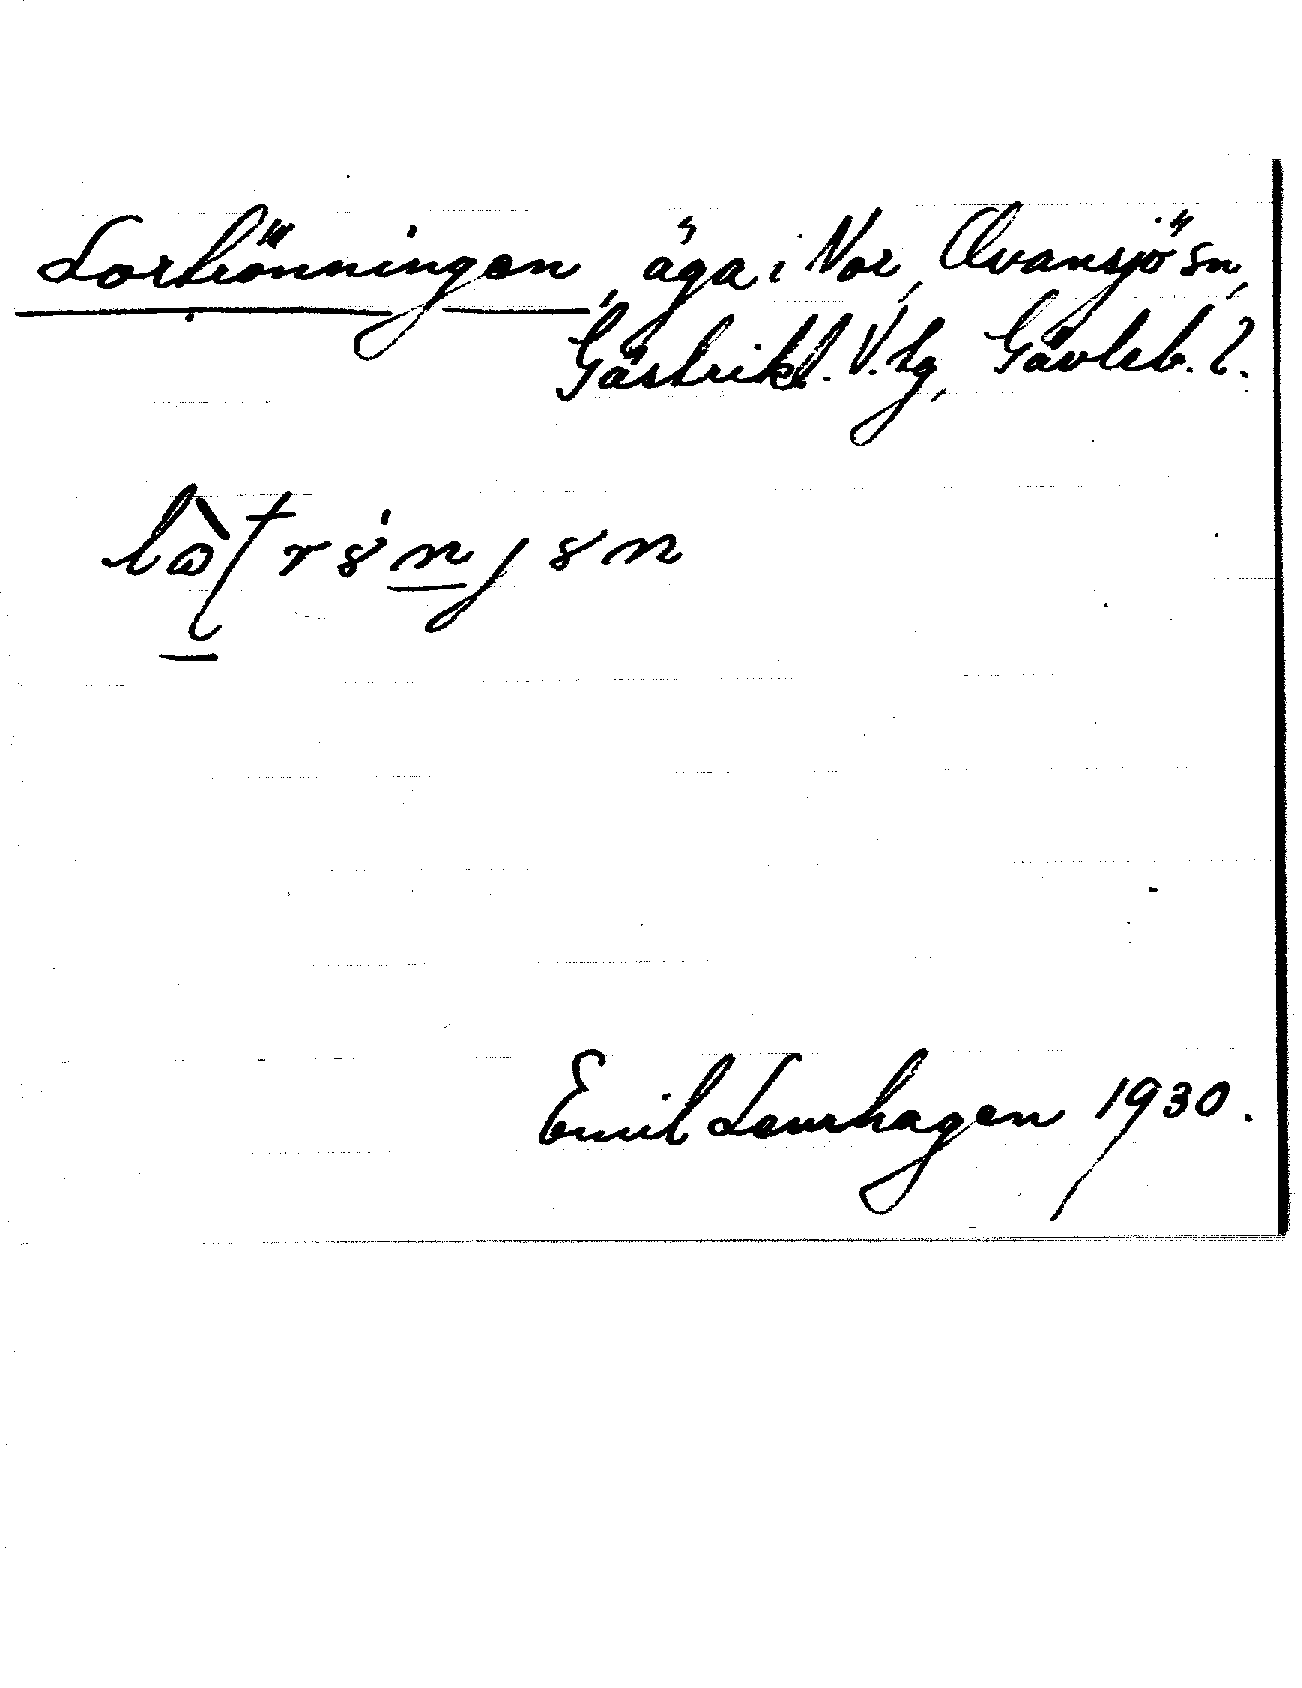 Lortrönningen, äga i Nor, Ovansjö sn,
Gästrikl. V. tg, Gävleb. l.
Emil Leurhagen 1930.